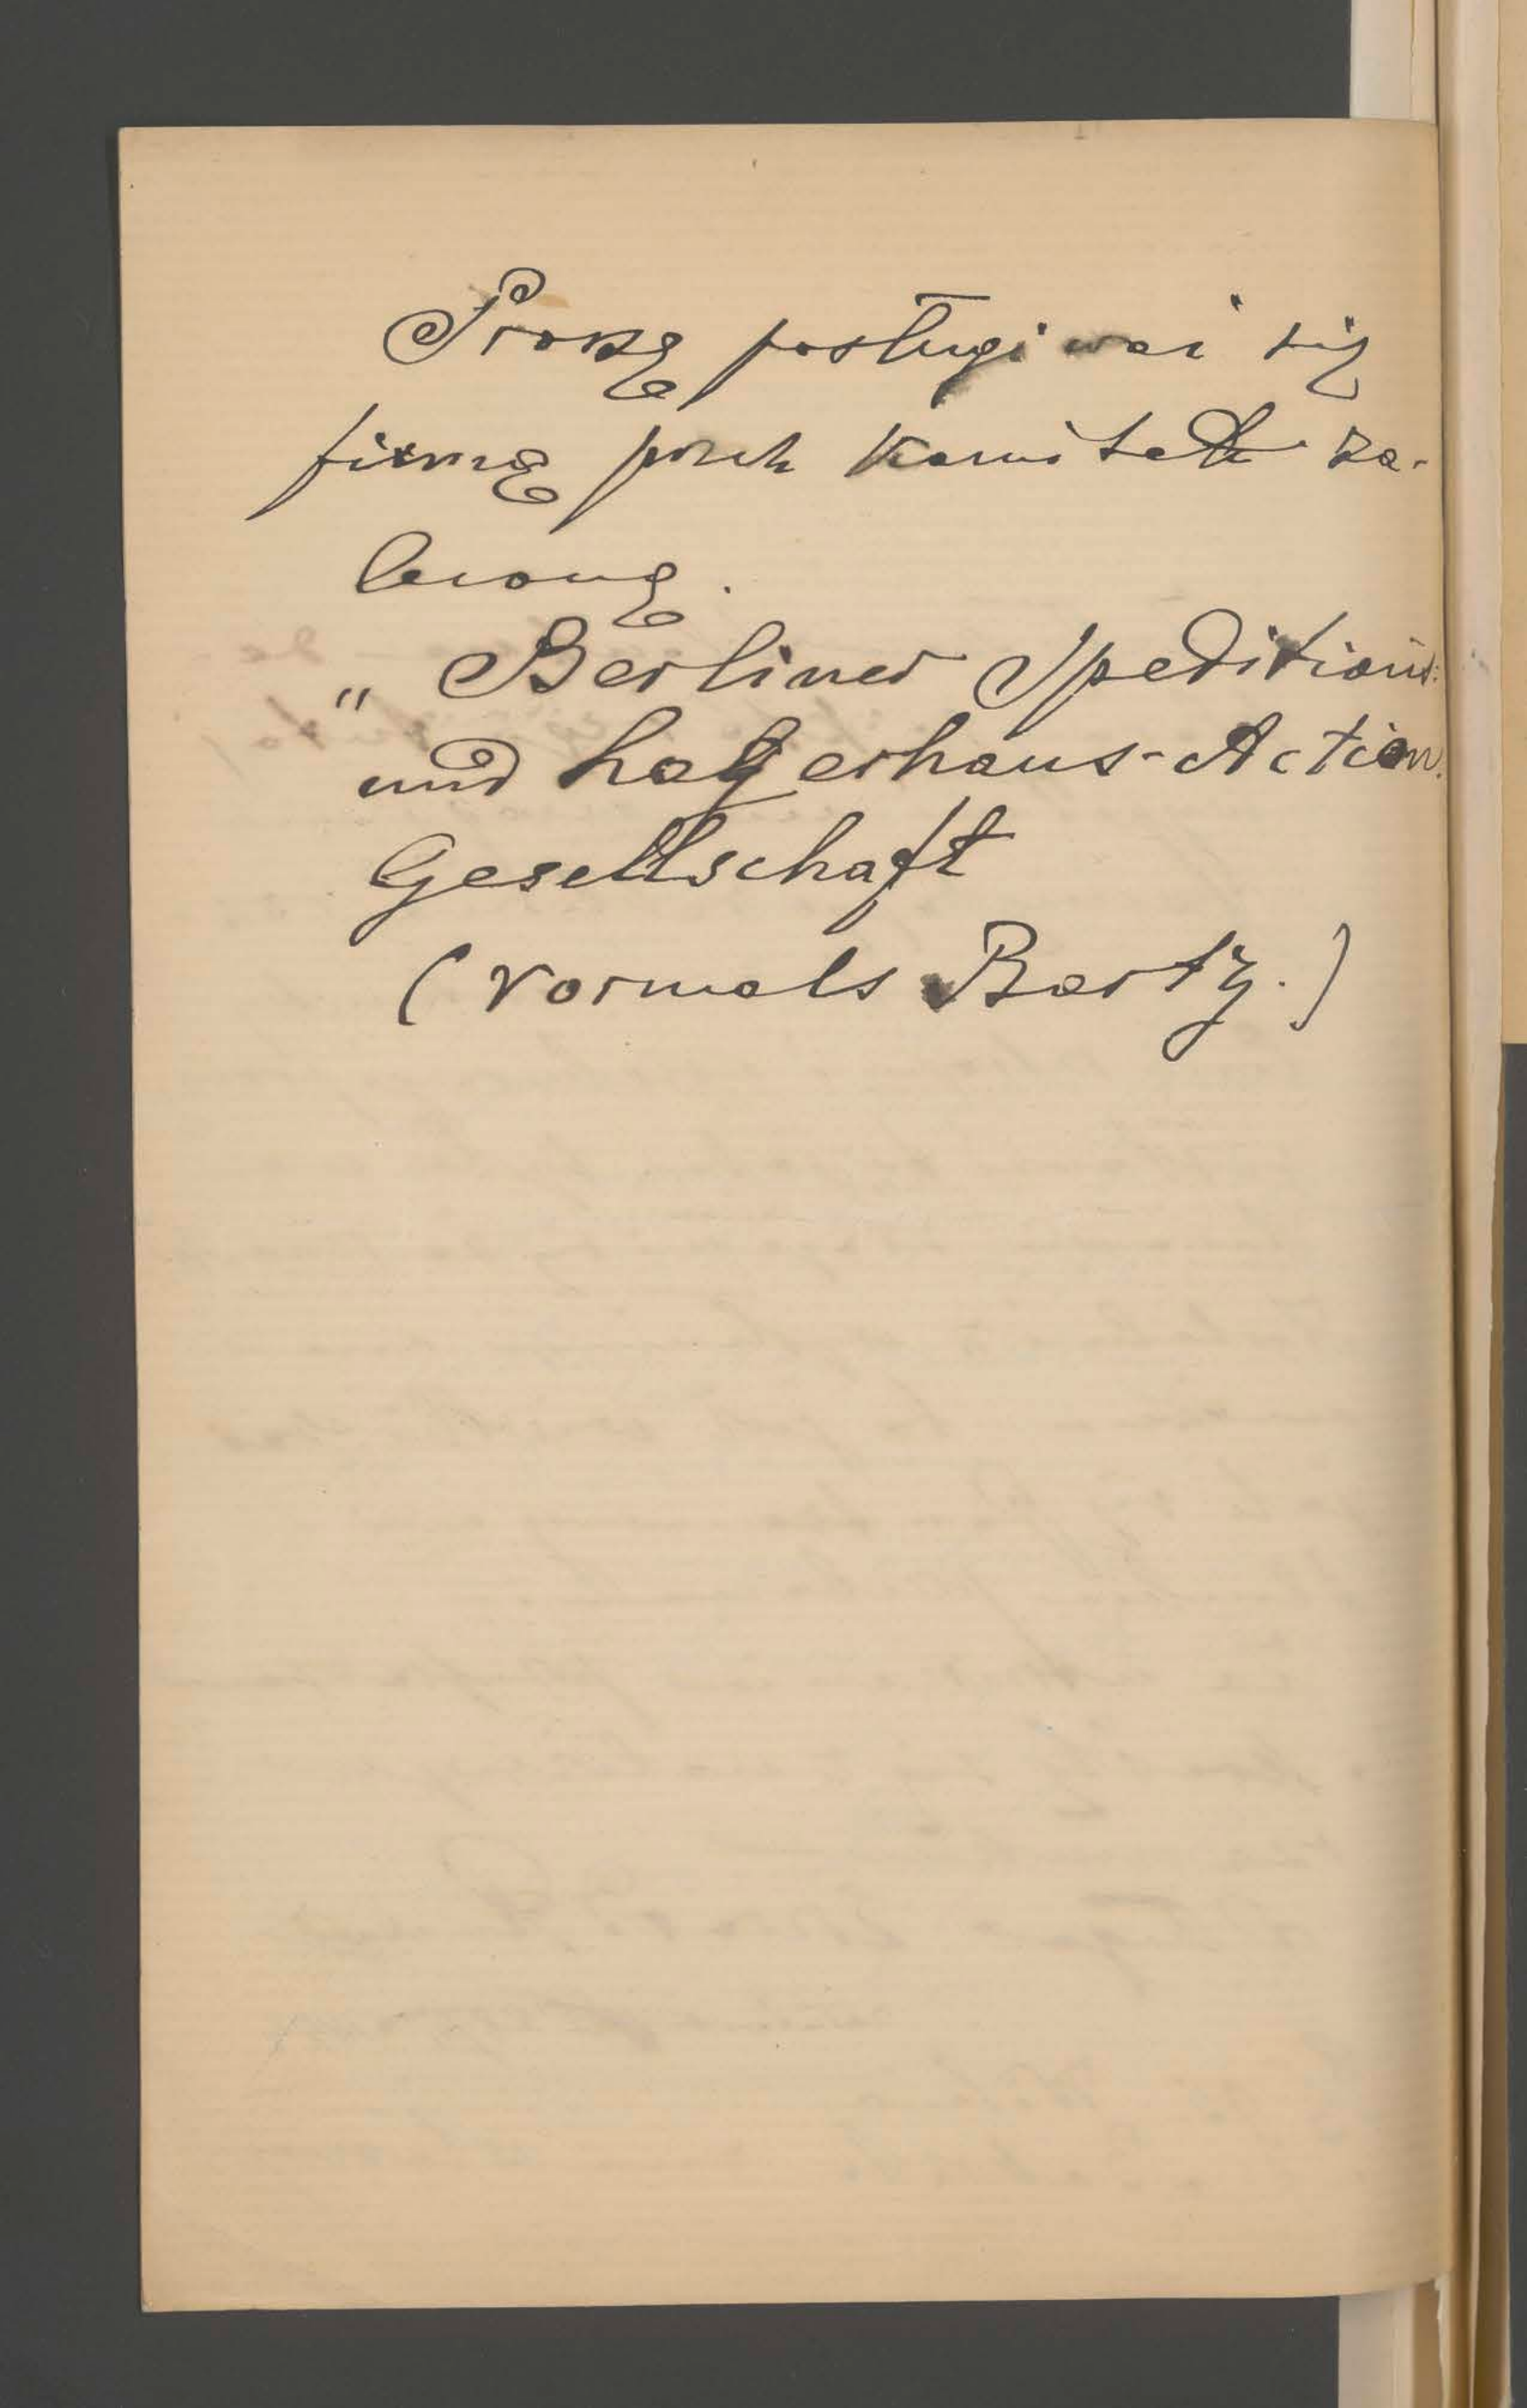 Proszę posługiwać się
firmą przez Komitet za-
leconą.
„ Berliner Speditions-
und Lagerhaus-Action.
Gesellschaft
(vormals Bartz.)